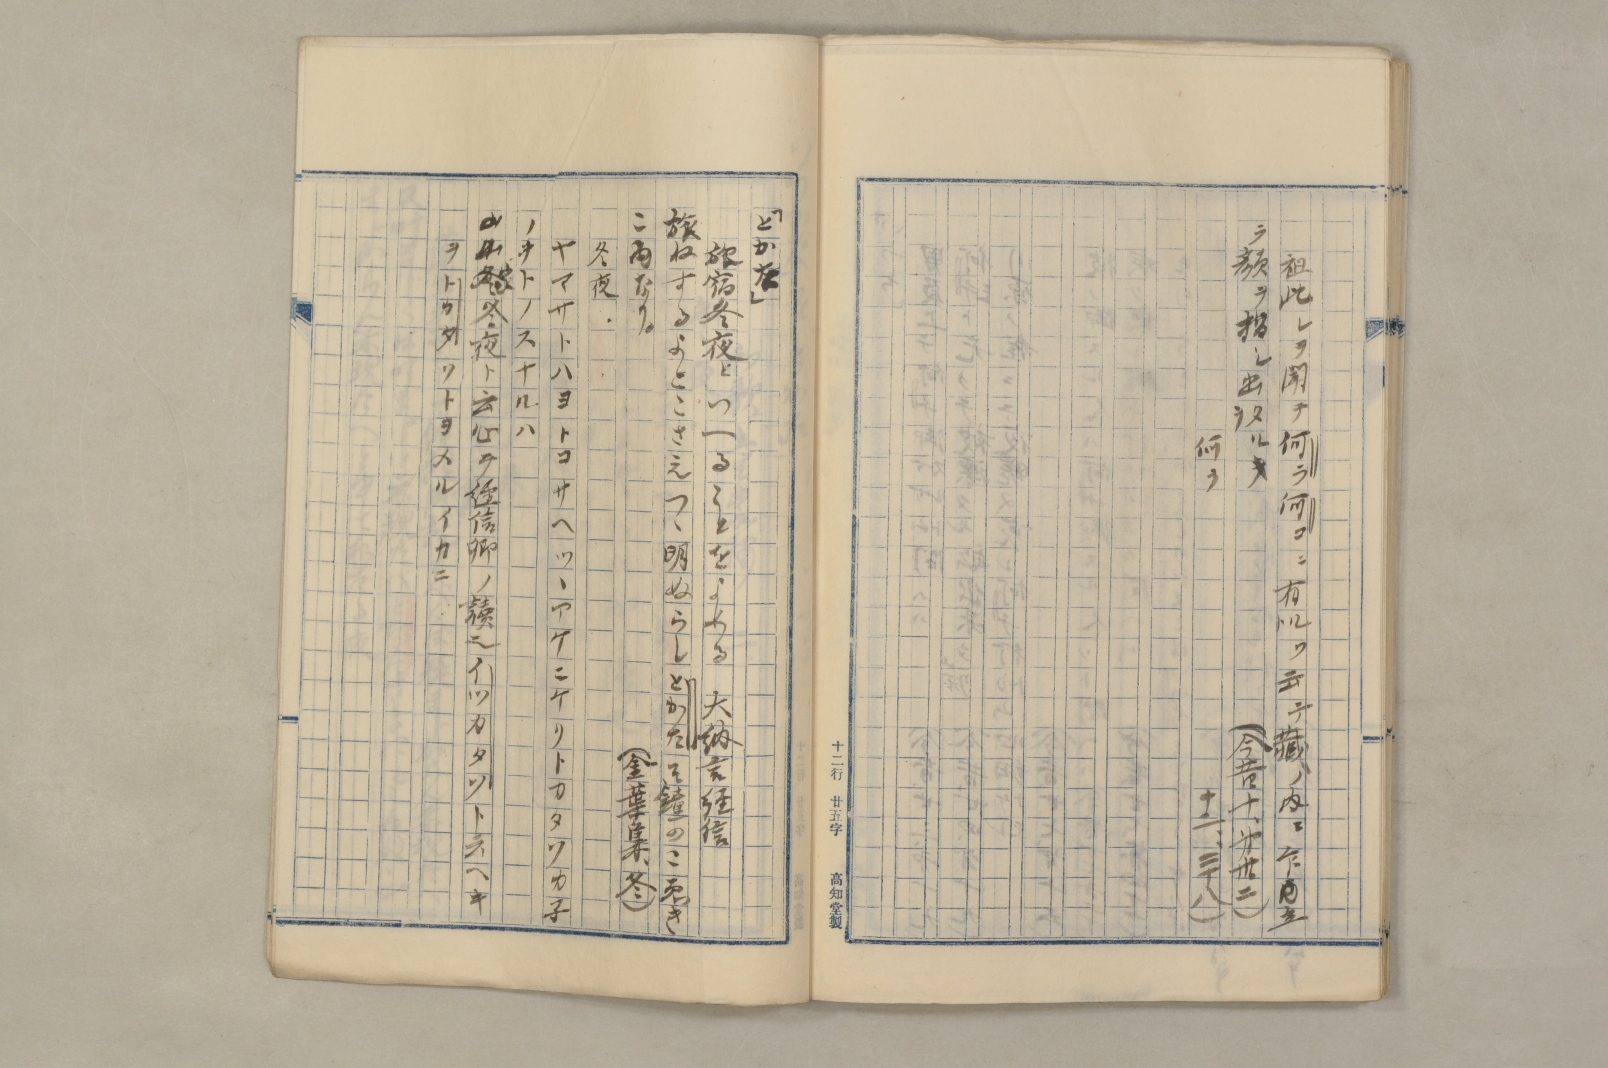 祖此レヲ聞テ何ラ何コニ有ルゾ云テ蔵ノ内ニ乍居立
ラ顔ラ指シ出タルヲ
(今昔十、卅二)
何ラ
十二、三十八)
十二行 廿五字 高知堂製
「とかた」
旅宿冬夜といへることをよめる 大納言経信
旅ねするよとこさえつゝ明ぬらしとかたそ鐘のこゑき
こゆなり。 (金葉集、冬)
冬夜.
ヤマサトハヨトコサヘツヽアケニケリトカタソカ子
ノヲトノスナルハ
山家冬夜ト云心ヲ経信卿ノ讀ニイツカタゾト云ヘキ
ヲトカタソトヨメルイカニ